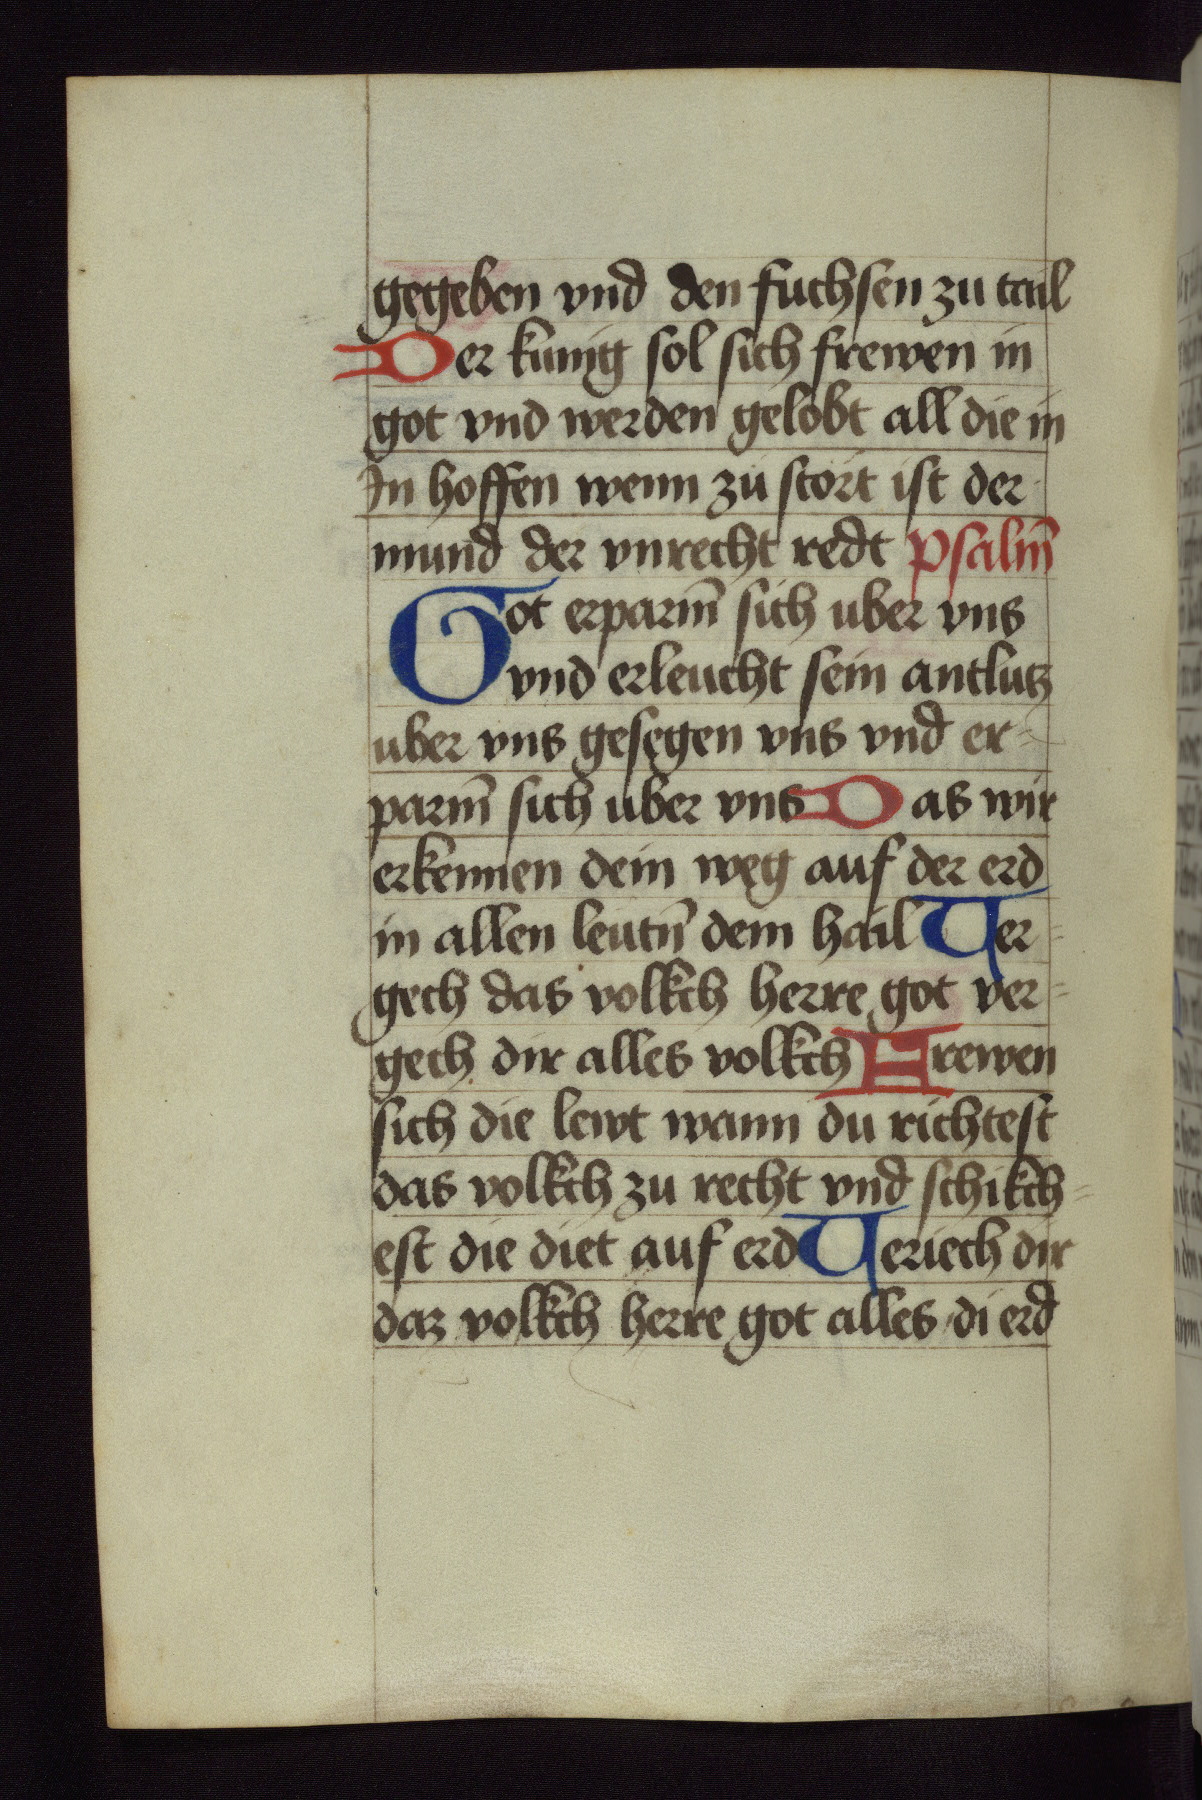 gegeben vnd den fuchsen zu tail
Der kunig sol sich frewen in
got vnd werden gelobt all die in
In hoffen wenn zu stört ist der
mund der vnrecht redt Psalm̄
Got erparm̄ sich uber vns
vnd erleucht sein antlutz
uber vns gesegen vns vnd er-
parm̄ sich uber vns Das wir
erkennen dein weg auf der erd
in allen leutn̄ dein hail Ver-
gech das volkch herre got ver-
gech dir alles volkch Frewen
sich die lewt wann du richtest
das volkch zu recht vnd schikch-
est die diet auf erd Veriech dir
daz volkch herre got alles di erd